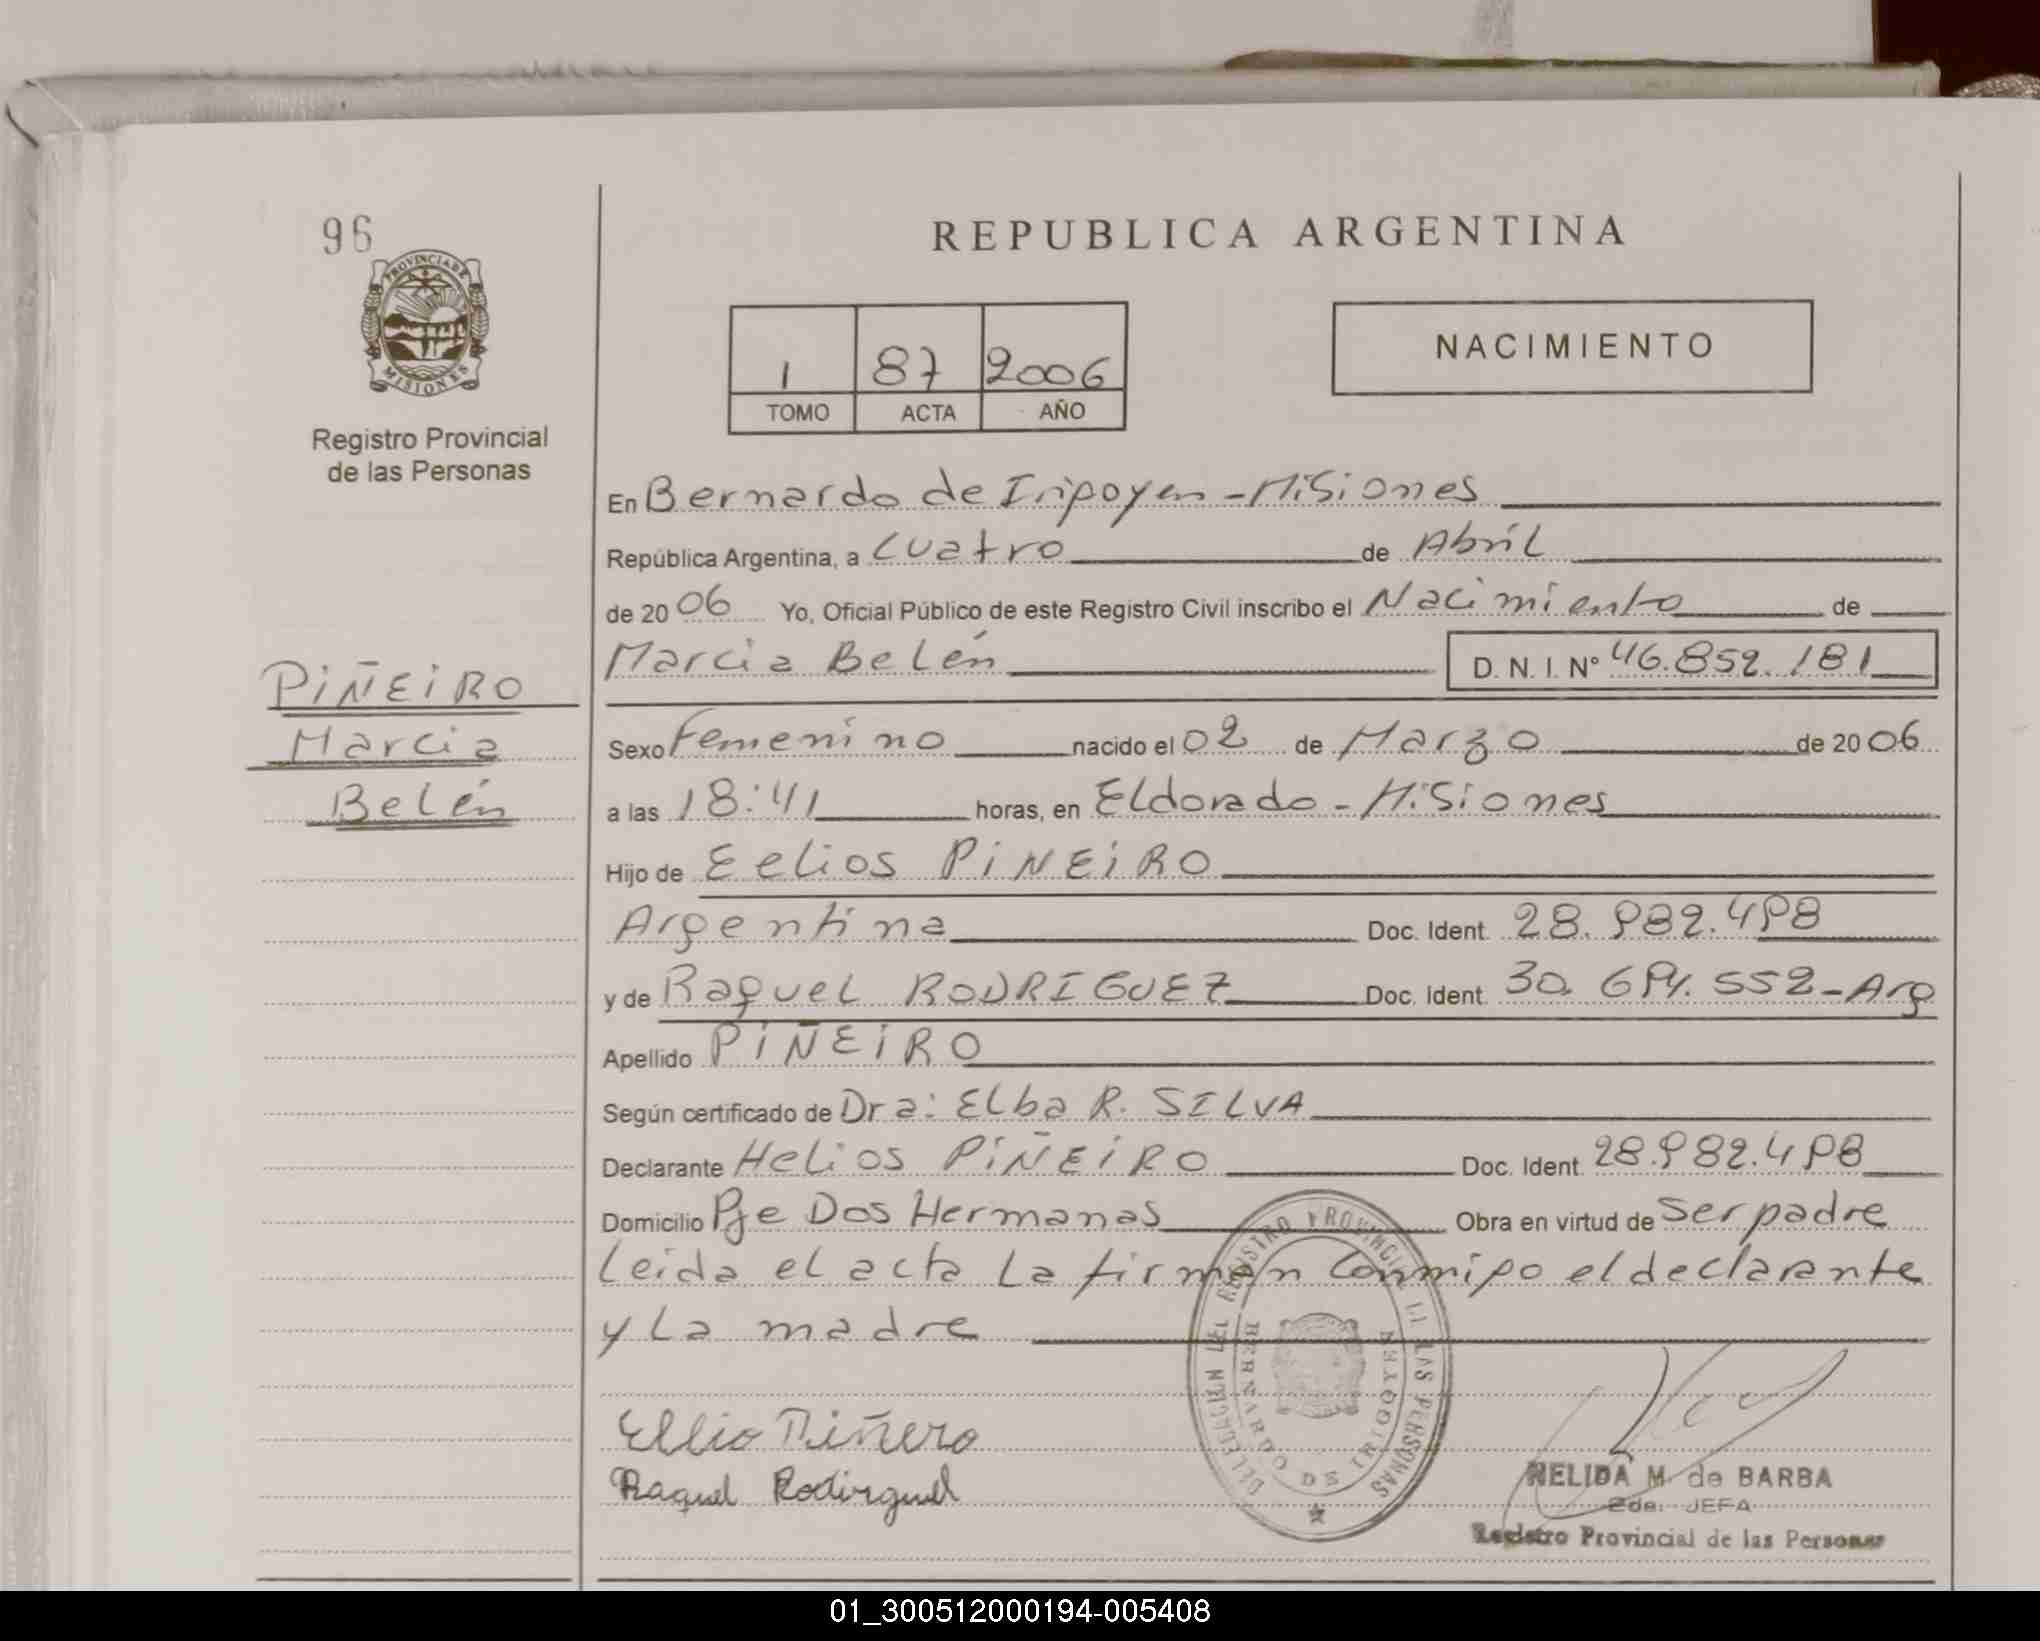 96
PROVINCIA DE
MISIONES
Registro Provincial
de las Personas
REPUBLICA ARGENTINA
1 87 2006
TOMO ACTA AÑO
NACIMIENTO
En Bernardo de Iripoyen - Misiones
República Argentina, a Cuatro de Abril
de 20 06 Yo, Oficial Público de este Registro Civil inscribo el Nacimiento de
Marcia Belén D. N. I. Nº 46.852.181
PIÑEIRO
Marcia
Belén
Sexo Femenino nacido el 02 de Marzo de 20 06
a las 18:41 horas, en Eldorado - Misiones
Hijo de Eelios PIÑEIRO
Argentina Doc. Ident. 28.982.498
y de Raquel RODRIGUEZ Doc. Ident. 30.694.552 - Arg
Apellido PIÑEIRO
Según certificado de Dra: Elba R. SILVA
Declarante Helios PIÑEIRO Doc. Ident. 28.982.498
Domicilio Pje Dos Hermanas Obra en virtud de ser padre
Leida el acta La firman Conmigo el declarante
y La madre
DELEGACION DEL REGISTRO PROVINCIAL DE LAS PERSONAS
BERNARDO DE IRIGOYEN
Ellio Piñero
Raquel Rodirguel
NELIDA M. de BARBA
Eda. JEFA
Registro Provincial de las Personas
01_300512000194-005408